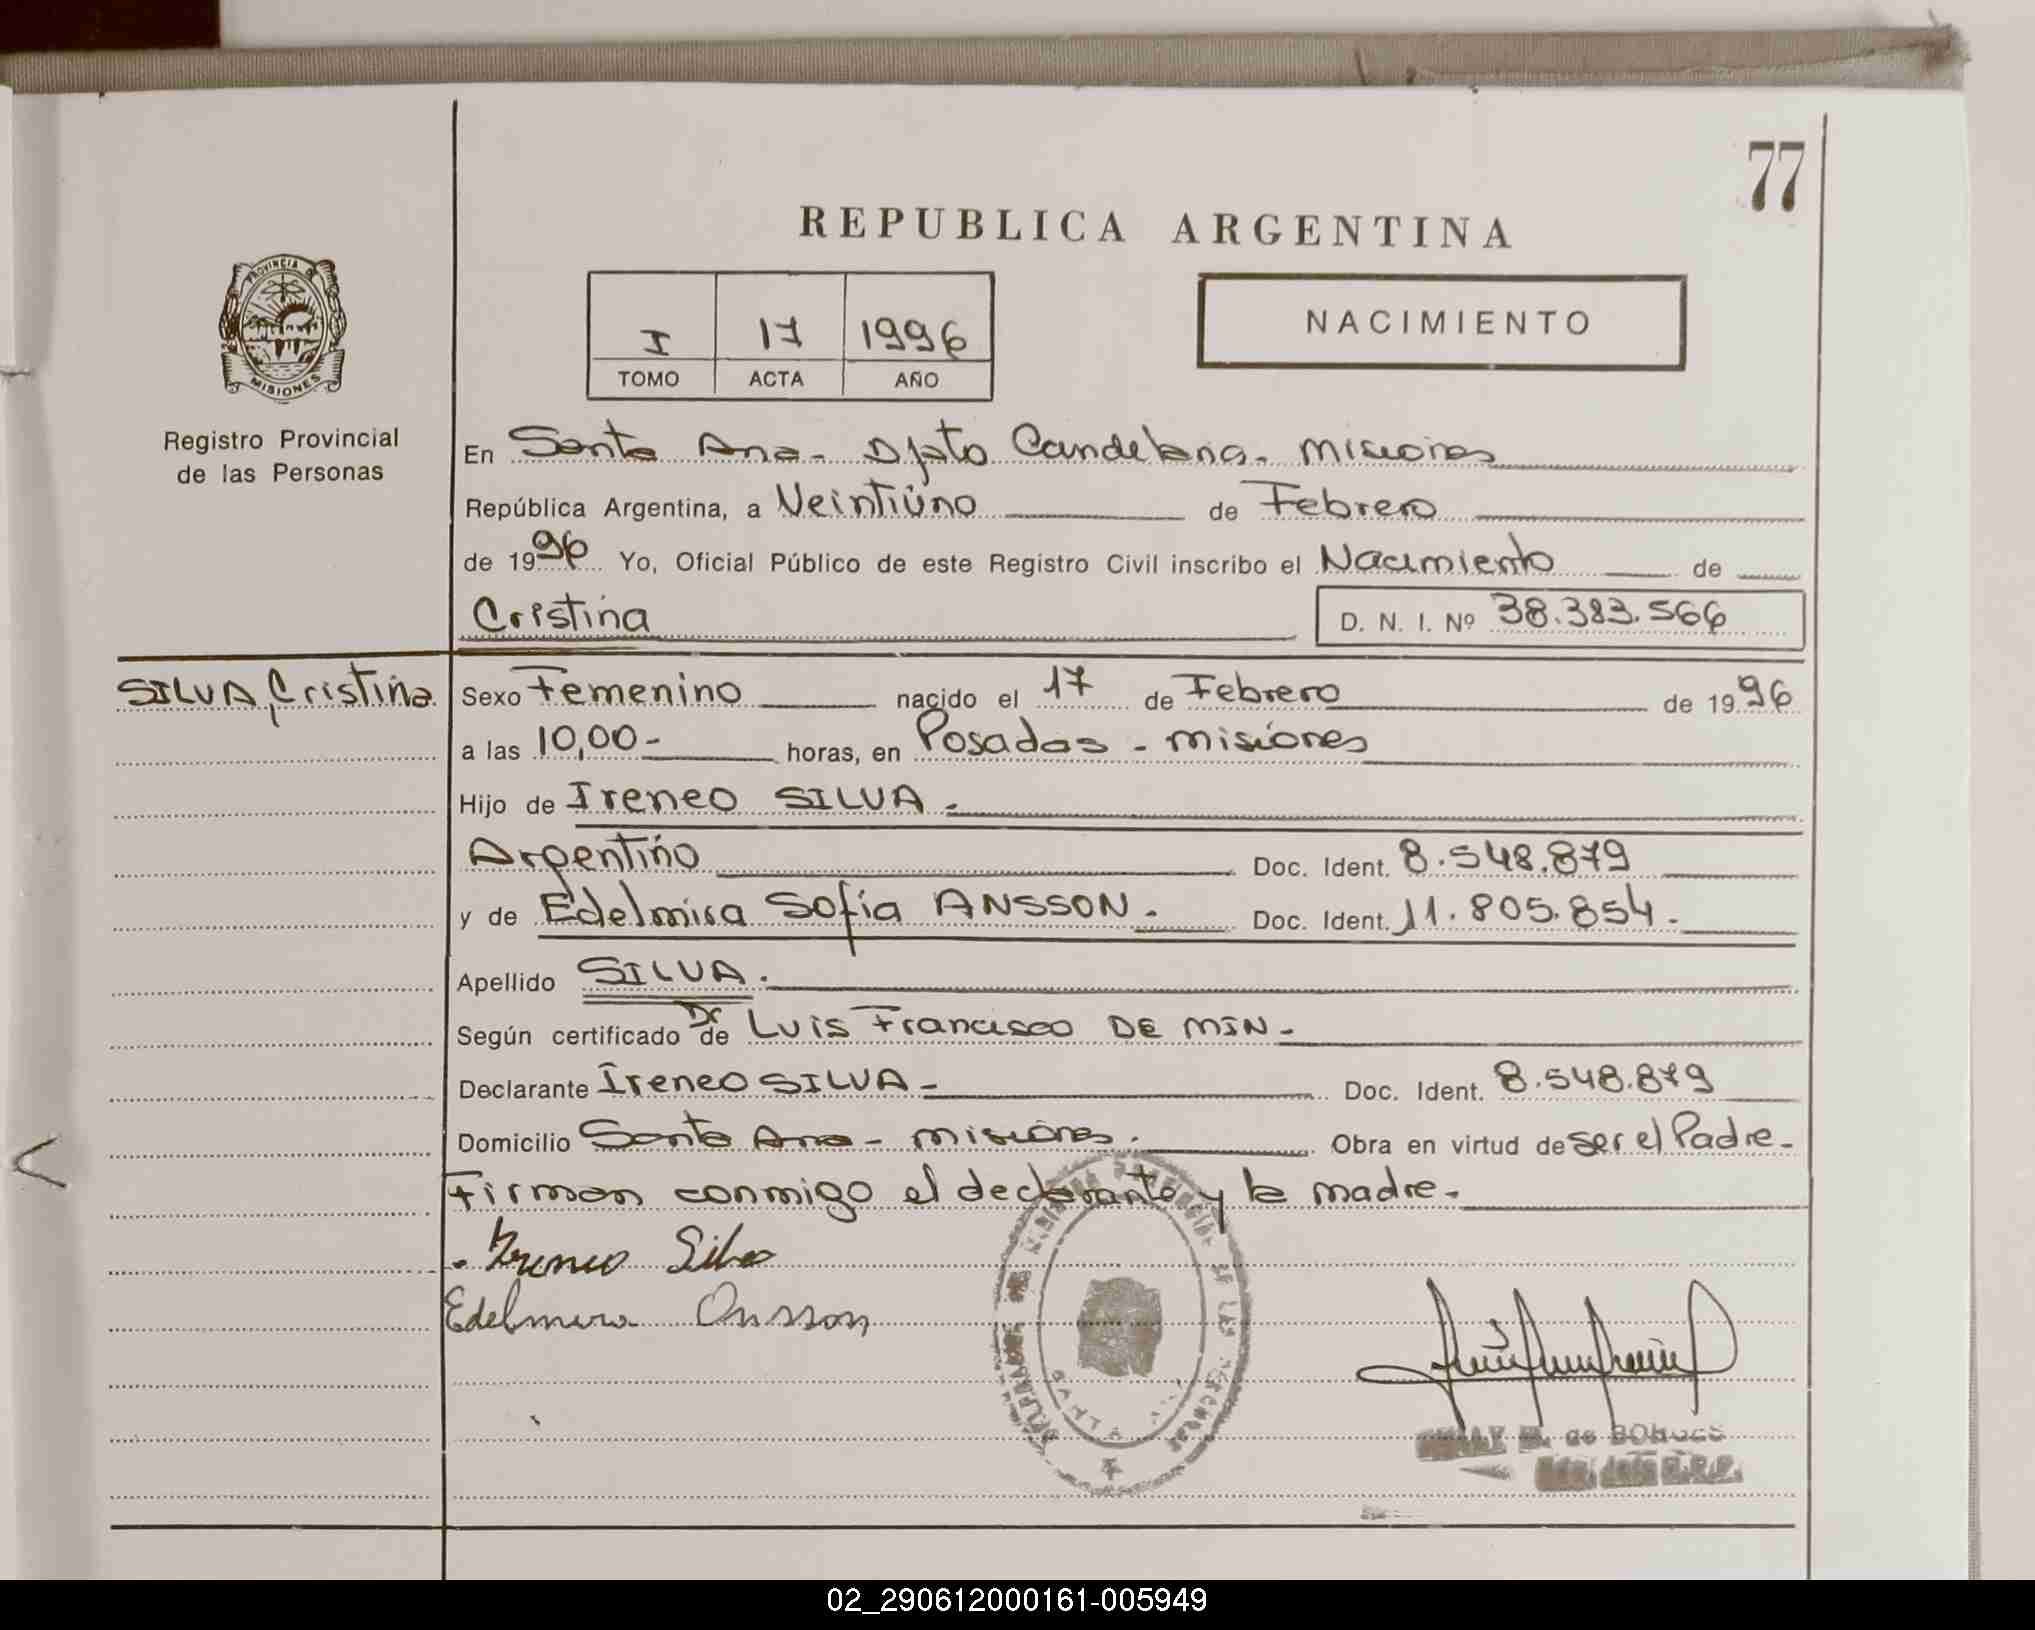 77
REPUBLICA ARGENTINA
PROVINCIA DE
MISIONES
Registro Provincial
de las Personas
I 17 1996
TOMO ACTA AÑO
NACIMIENTO
En Santa Ana - Dpto Candelaria - Misiones
República Argentina, a Veintiúno de Febrero
de 1996 Yo, Oficial Público de este Registro Civil inscribo el Nacimiento de
Cristina D. N. I. Nº 38.383.566
SILVA, Cristina
Sexo Femenino nacido el 17 de Febrero de 1996
a las 10,00- horas, en Posadas - Misiones
Hijo de Ireneo SILVA.
Argentino Doc. Ident. 8.548.879
y de Edelmira Sofía ANSSON. Doc. Ident. 11.805.854.
Apellido SILVA.
Según certificado de Dr Luis Francisco DE MIN.
Declarante Ireneo SILVA - Doc. Ident. 8.548.879
Domicilio Santa Ana - Misiones. Obra en virtud de ser el Padre.
Firman conmigo el declarante y la madre.
Ireneo Silva
Edelmira Ansson
de
02_290612000161-005949